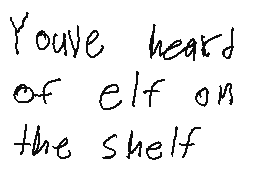 Youve heard
of elf on
the shelf